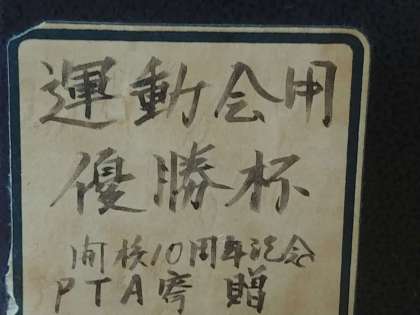 運動会用
優勝杯
開校10周年記念
PTA寄贈